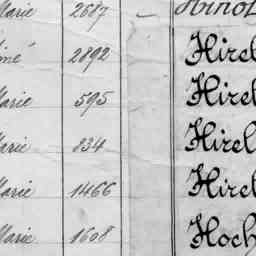 Marie 2687 Hinot
Aimé 2892 Hirel
Marie 595 Hirel
Marie 834 Hirel
Marie 1466 Hirel
Marie 1608 Hoch